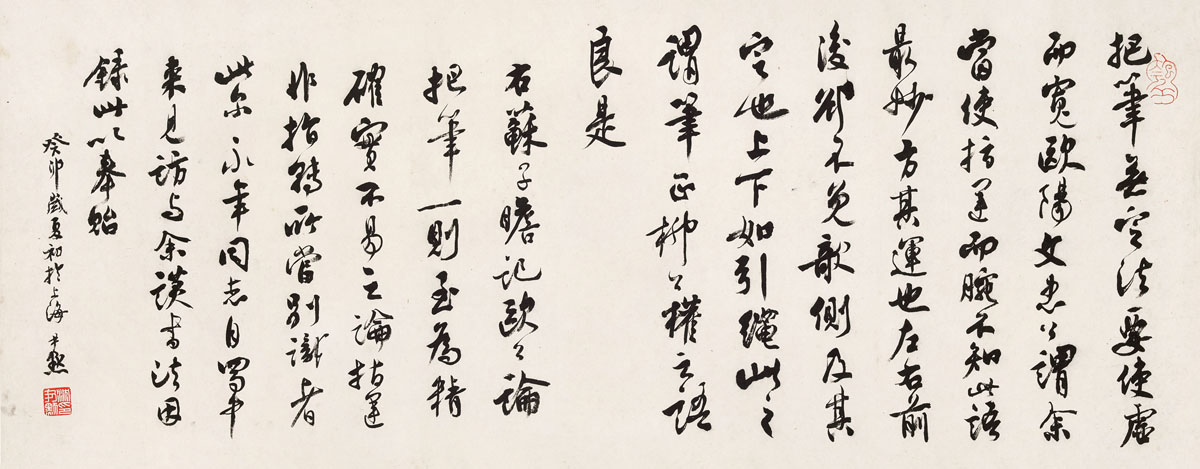 把筆無定法要使虛
而寬歐陽文忠公謂余
當使指運而腕不知此語
最妙方其運也左右前
後卻不免欹側及其
定也上下如引繩此之
謂筆正柳公權之語
良是
右蘇子瞻記歐公論
把筆一則至為精
確實不易之論指運
非指轉所當別識者
此永年同志自蜀中
來見訪与余談書法因
錄此以奉貽
癸卯歲夏初於上海尹默